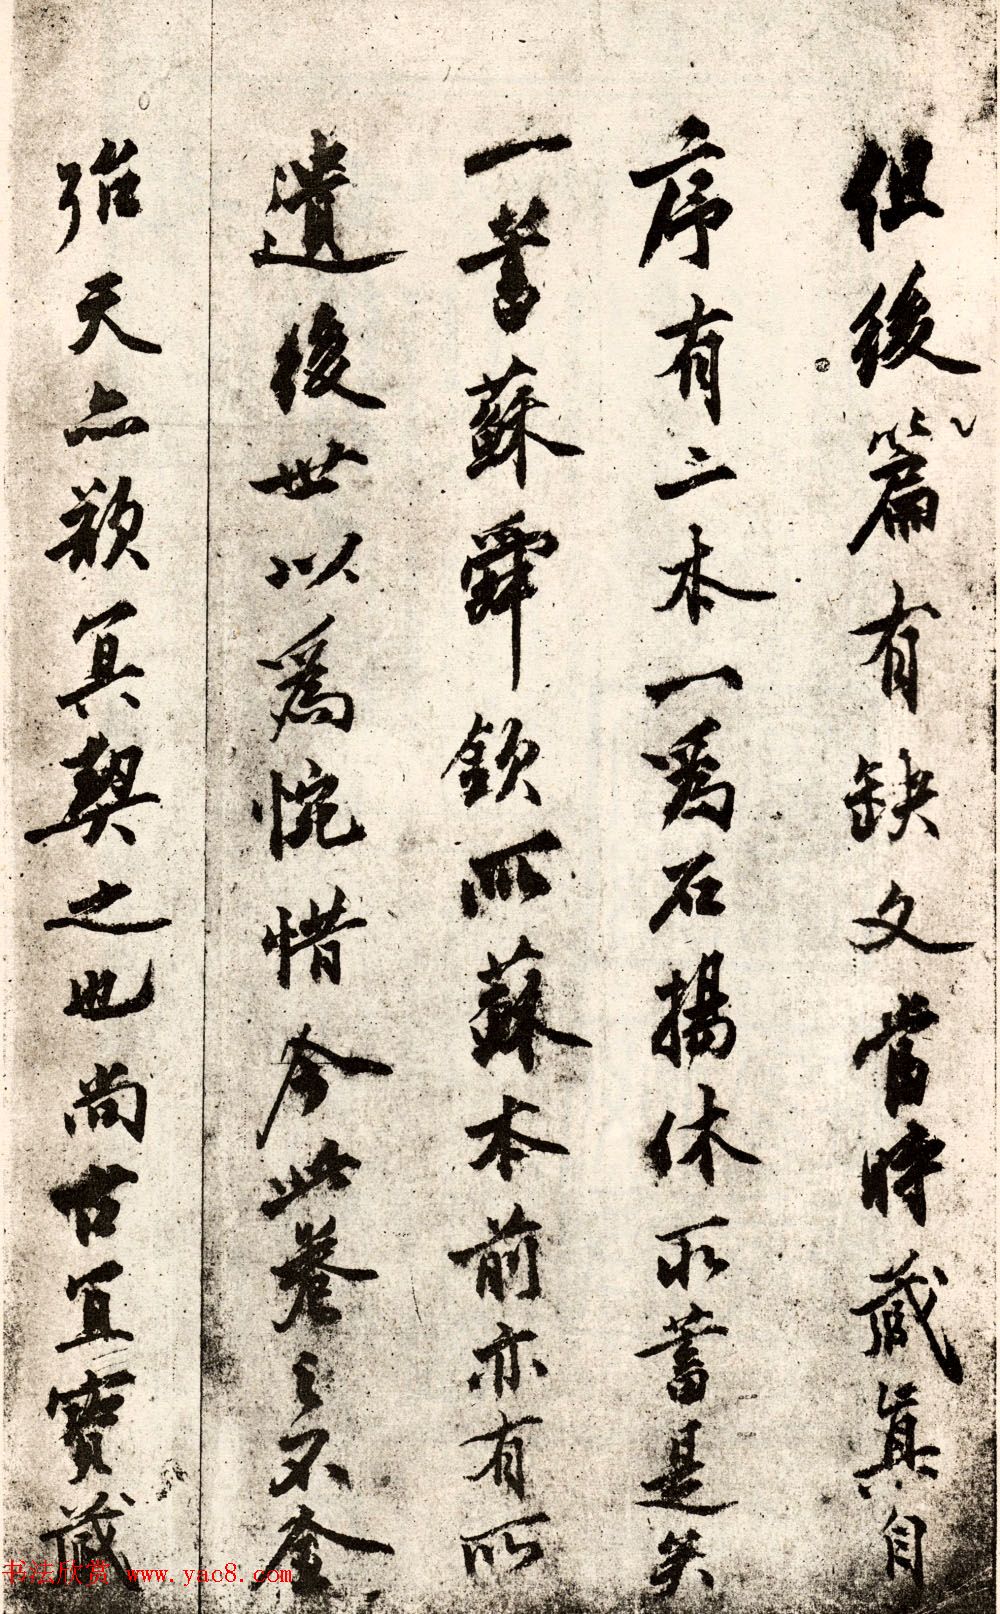 但後篇有缺文當時藏真自
序有二本一爲石揚休所蓄是矣
一書蘇舜欽所蘇本前亦有所
遺後世以爲惋惜今此卷之不全
張天亦欲冥契之也尚古宜寶藏
书法欣赏 www.yac8.com